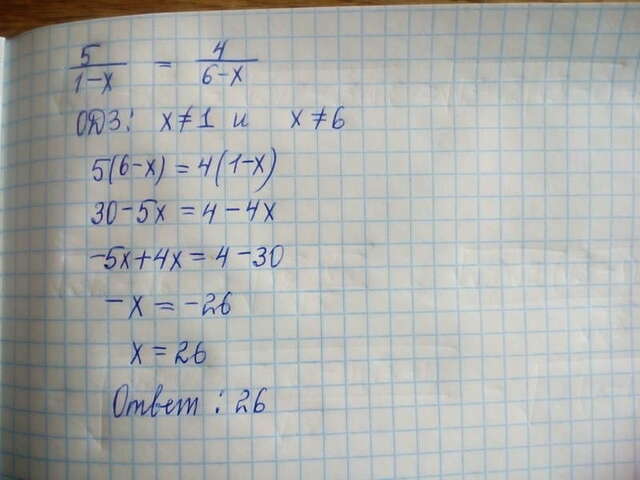 5/(1-x) = 4/(6-x)
ОДЗ: x≠1 и x≠6
5(6-x)=4(1-x)
30-5x=4-4x
-5x+4x=4-30
-x=-26
x=26
Ответ: 26